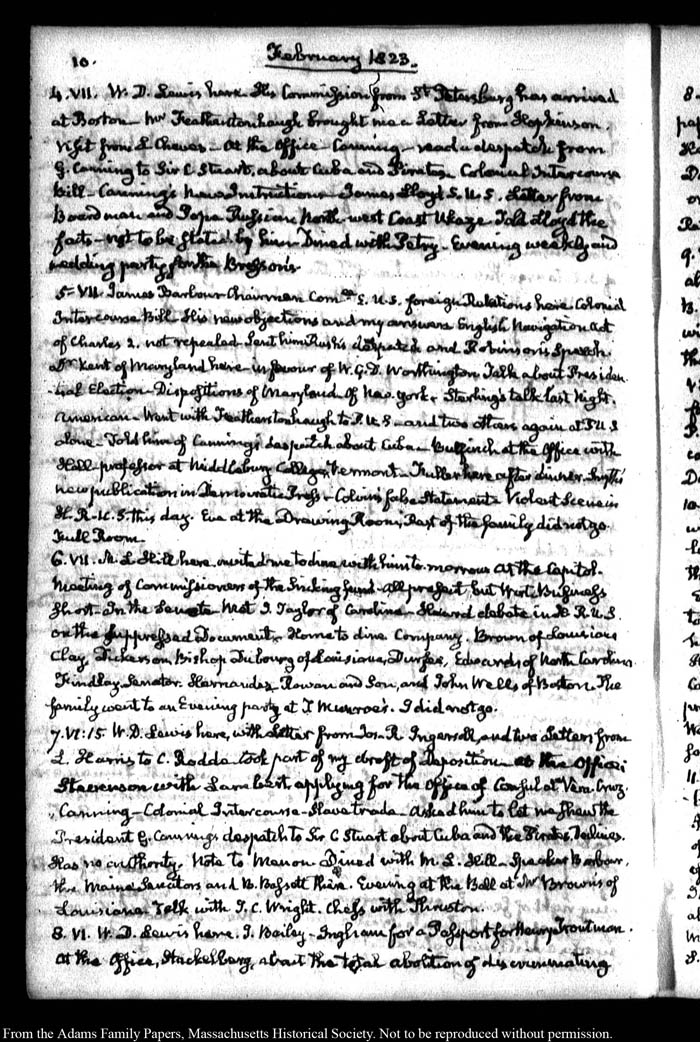 10.
February 1823.
4. VII. W. D. Lewis here. His Commission from St Petersburg has arrived
at Boston. Mr Featherstonhaugh brought me a Letter from Hopkinson.
Visit from L Cheves. At the Office Canning read a despatch from
G. Canning to Sir C Stuart, about Cuba and Pirates. Colonial Intercourse
bill. Canning's new Instructions. James Lloyd S. U. S. Letter from
Boardman and Pope Russian North-west Coast Ukaze. Told Lloyd the
facts not to be stated by him. Dined with Petry. Evening weekly and
wedding party for the
5. VII. James Barbour Chairman Comee S. U.S. foreign Relations here Colonial
Intercourse Bill. His new objections and my answers. English Navigation Act
of Charles 2. not repealed. Sent him Rush's despatch and Robinson's Speech.
Kent of Maryland here in favour of W. G. D. Worthington. Talk about Presiden
tial Election. Dispositions of Maryland. Of New-York. Sterling's talk last Night.
American. Went with Featherstonhaugh to P. U S. and two others again at P. U S
alone. Told him of Canning's despatch about Cuba. Bulfinch at the Office with
Hall professor at Middlebury College, Vermont. Fuller here after dinner. Smyth's
new publication in Democratic Press. Colvin's false Statement. Violent Scene in
H. R. U. S. this day. Eve at the Drawing Room, Rest of the family did not go.
Full Room
6. VII. M. L Hill here. invited me to dine with him to-morrow. At the Capitol.
Meeting of Commissioners of the Sinking fund. All present but West. Business
short. In the Senate. Met J. Taylor of Caroline. Heard debate in H. R. U. S.
on the suppressed Document. Home to dine Company. Brown of Louisiana
Clay, Dickerson, Bishop Dubourg of Louisiana, Durfee, Edwards of North Carolina
Findlay Senator. Hernandez, Rowan and Son, and John Wells of Boston. The
family went to an Evening party at T Munroe's. I did not go.
7. VI:15. W. D. Lewis here, with Letter from Jos. R. Ingersoll, and two Letters from
L. Harris to C. Rodde. took part of my draft of Deposition. at the Office;
Stevenson with Lambert, applying for the Office of Consul at Vera Cruz.
Canning. Colonial Intercourse. Slave trade. Asked him to let me shew the
President G. Canning's despatch to Sir C Stuart about Cuba and the Pirates. Declines.
Has no authority. Note to Menou. Dined with M. L. Hill. Speaker Barbour,
the Maine Senators and B. Bassett there. Evening at the Ball at Mr Brown's of
Louisiana. Talk with J. C. Wright. Chess with Thruston.
8. VI. W. D. Lewis here. J. Bailey. Ingham for a Passport for Henry Troutman.
At the Office, Stackelberg, about the total abolition of discriminating
From the Adams Family Papers, Massachusetts Historical Society. Not to be reproduced without permission.